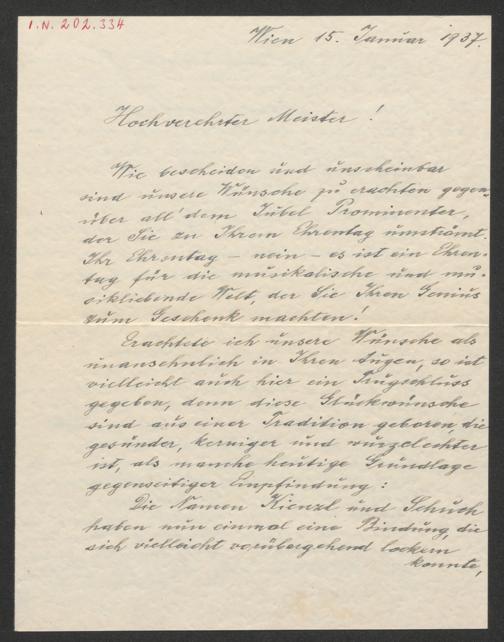 I.N. 202.334
Wien 15. Januar 1937.
Hochverehrter Meister !
Wie bescheiden und unscheinbar
sind unsere Wünsche zu erachten gegen-
über all' dem Jubel Prominenter,
der Sie zu Ihrem Ehrentag umströmt.
Ihr Ehrentag – nein – es ist ein Ehren-
tag für die musikalische und mu-
sikliebende Welt, der Sie Ihren Genius
zum Geschenk machten !
Erachtete ich unsere Wünsche als
unansehnlich in Ihren Augen, so ist
vielleicht auch hier ein Trugschluss
gegeben, denn diese Glückwünsche
sind aus einer Tradition geboren, die
gesünder, kerniger und wurzelechter
ist, als manche heutige Grundlage
gegenseitiger Empfindung :
Die Namen Kienzl und Schuch
haben nun einmal eine Bindung, die
sich vielleicht vorübergehend lockern
konnte,